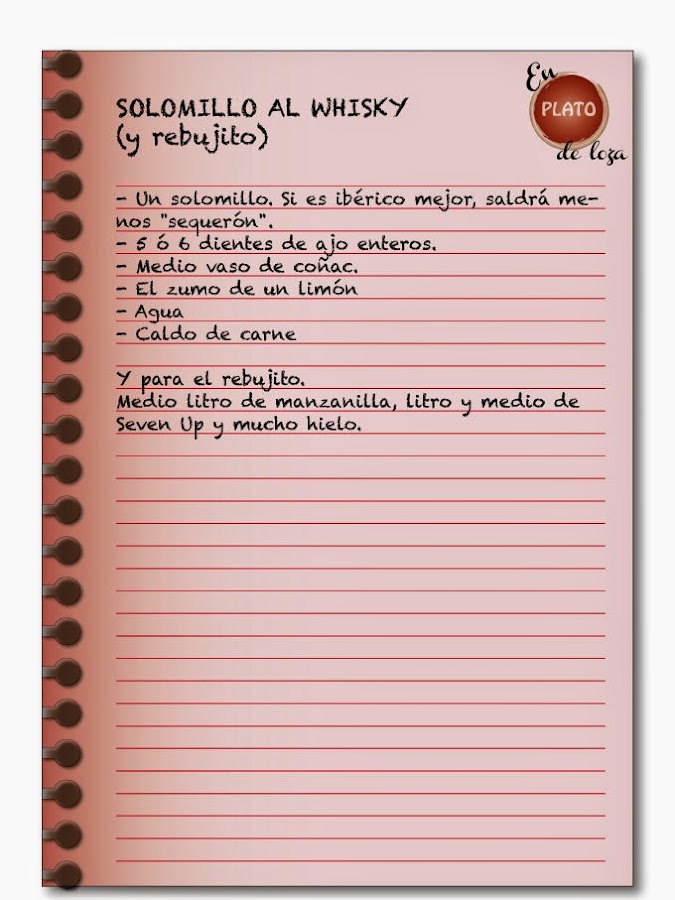 En
PLATO
de loza
SOLOMILLO AL WHISKY
(y rebujito)
- Un solomillo. Si es ibérico mejor, saldrá me-
nos "sequerón".
- 5 ó 6 dientes de ajo enteros.
- Medio vaso de coñac.
- El zumo de un limón
- Agua
- Caldo de carne
Y para el rebujito.
Medio litro de manzanilla, litro y medio de
Seven Up y mucho hielo.